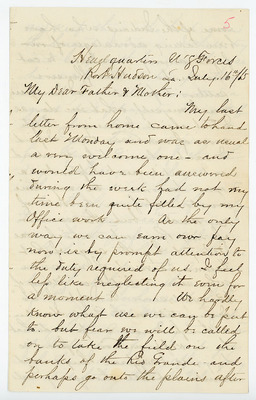 5
Headquarters U S Forces
Port Hudson La July 16th/65
My Dear Father & Mother:
My last
letter from home came to hand
last Monday and was as usual
a very welcome one - and
would have been answered
during the week had not my
time been quite filled by my
Office work As the only
way we can earn our pay
now, is by prompt attention to
the duty required of us. I feel
less like neglecting it even for
a moment We hardly
know what use we can be put
to but fear we will be called
on to take the field on the
banks of the Rio Grande and
perhaps go onto the plains after